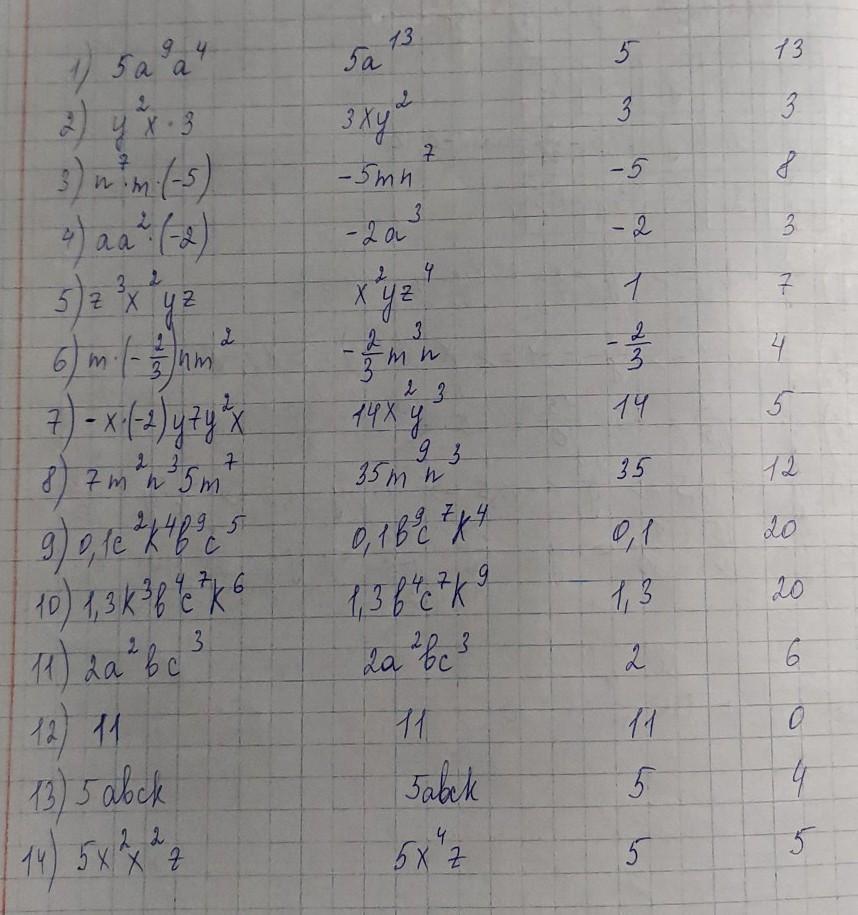 1) 5a⁹a⁴ 5a¹³ 5 13
2) y²x·3 3xy² 3 3
3) n⁷·m·(-5) -5mn⁷ -5 8
4) aa²·(-2) -2a³ -2 3
5) z³x²yz x²yz⁴ 1 7
6) m·(-2/3)nm² -2/3m³n -2/3 4
7) -x·(-2)y7y²x 14x²y³ 14 5
8) 7m²n³5m⁷ 35m⁹n³ 35 12
9) 0,1c²k⁴в⁹c⁵ 0,1в⁹c⁷k⁴ 0,1 20
10) 1,3k³в⁴c⁷k⁶ 1,3в⁴c⁷k⁹ 1,3 20
11) 2a²вc³ 2a²вc³ 2 6
12) 11 11 11 0
13) 5abck 5abck 5 4
14) 5x²x²z 5x⁴z 5 5